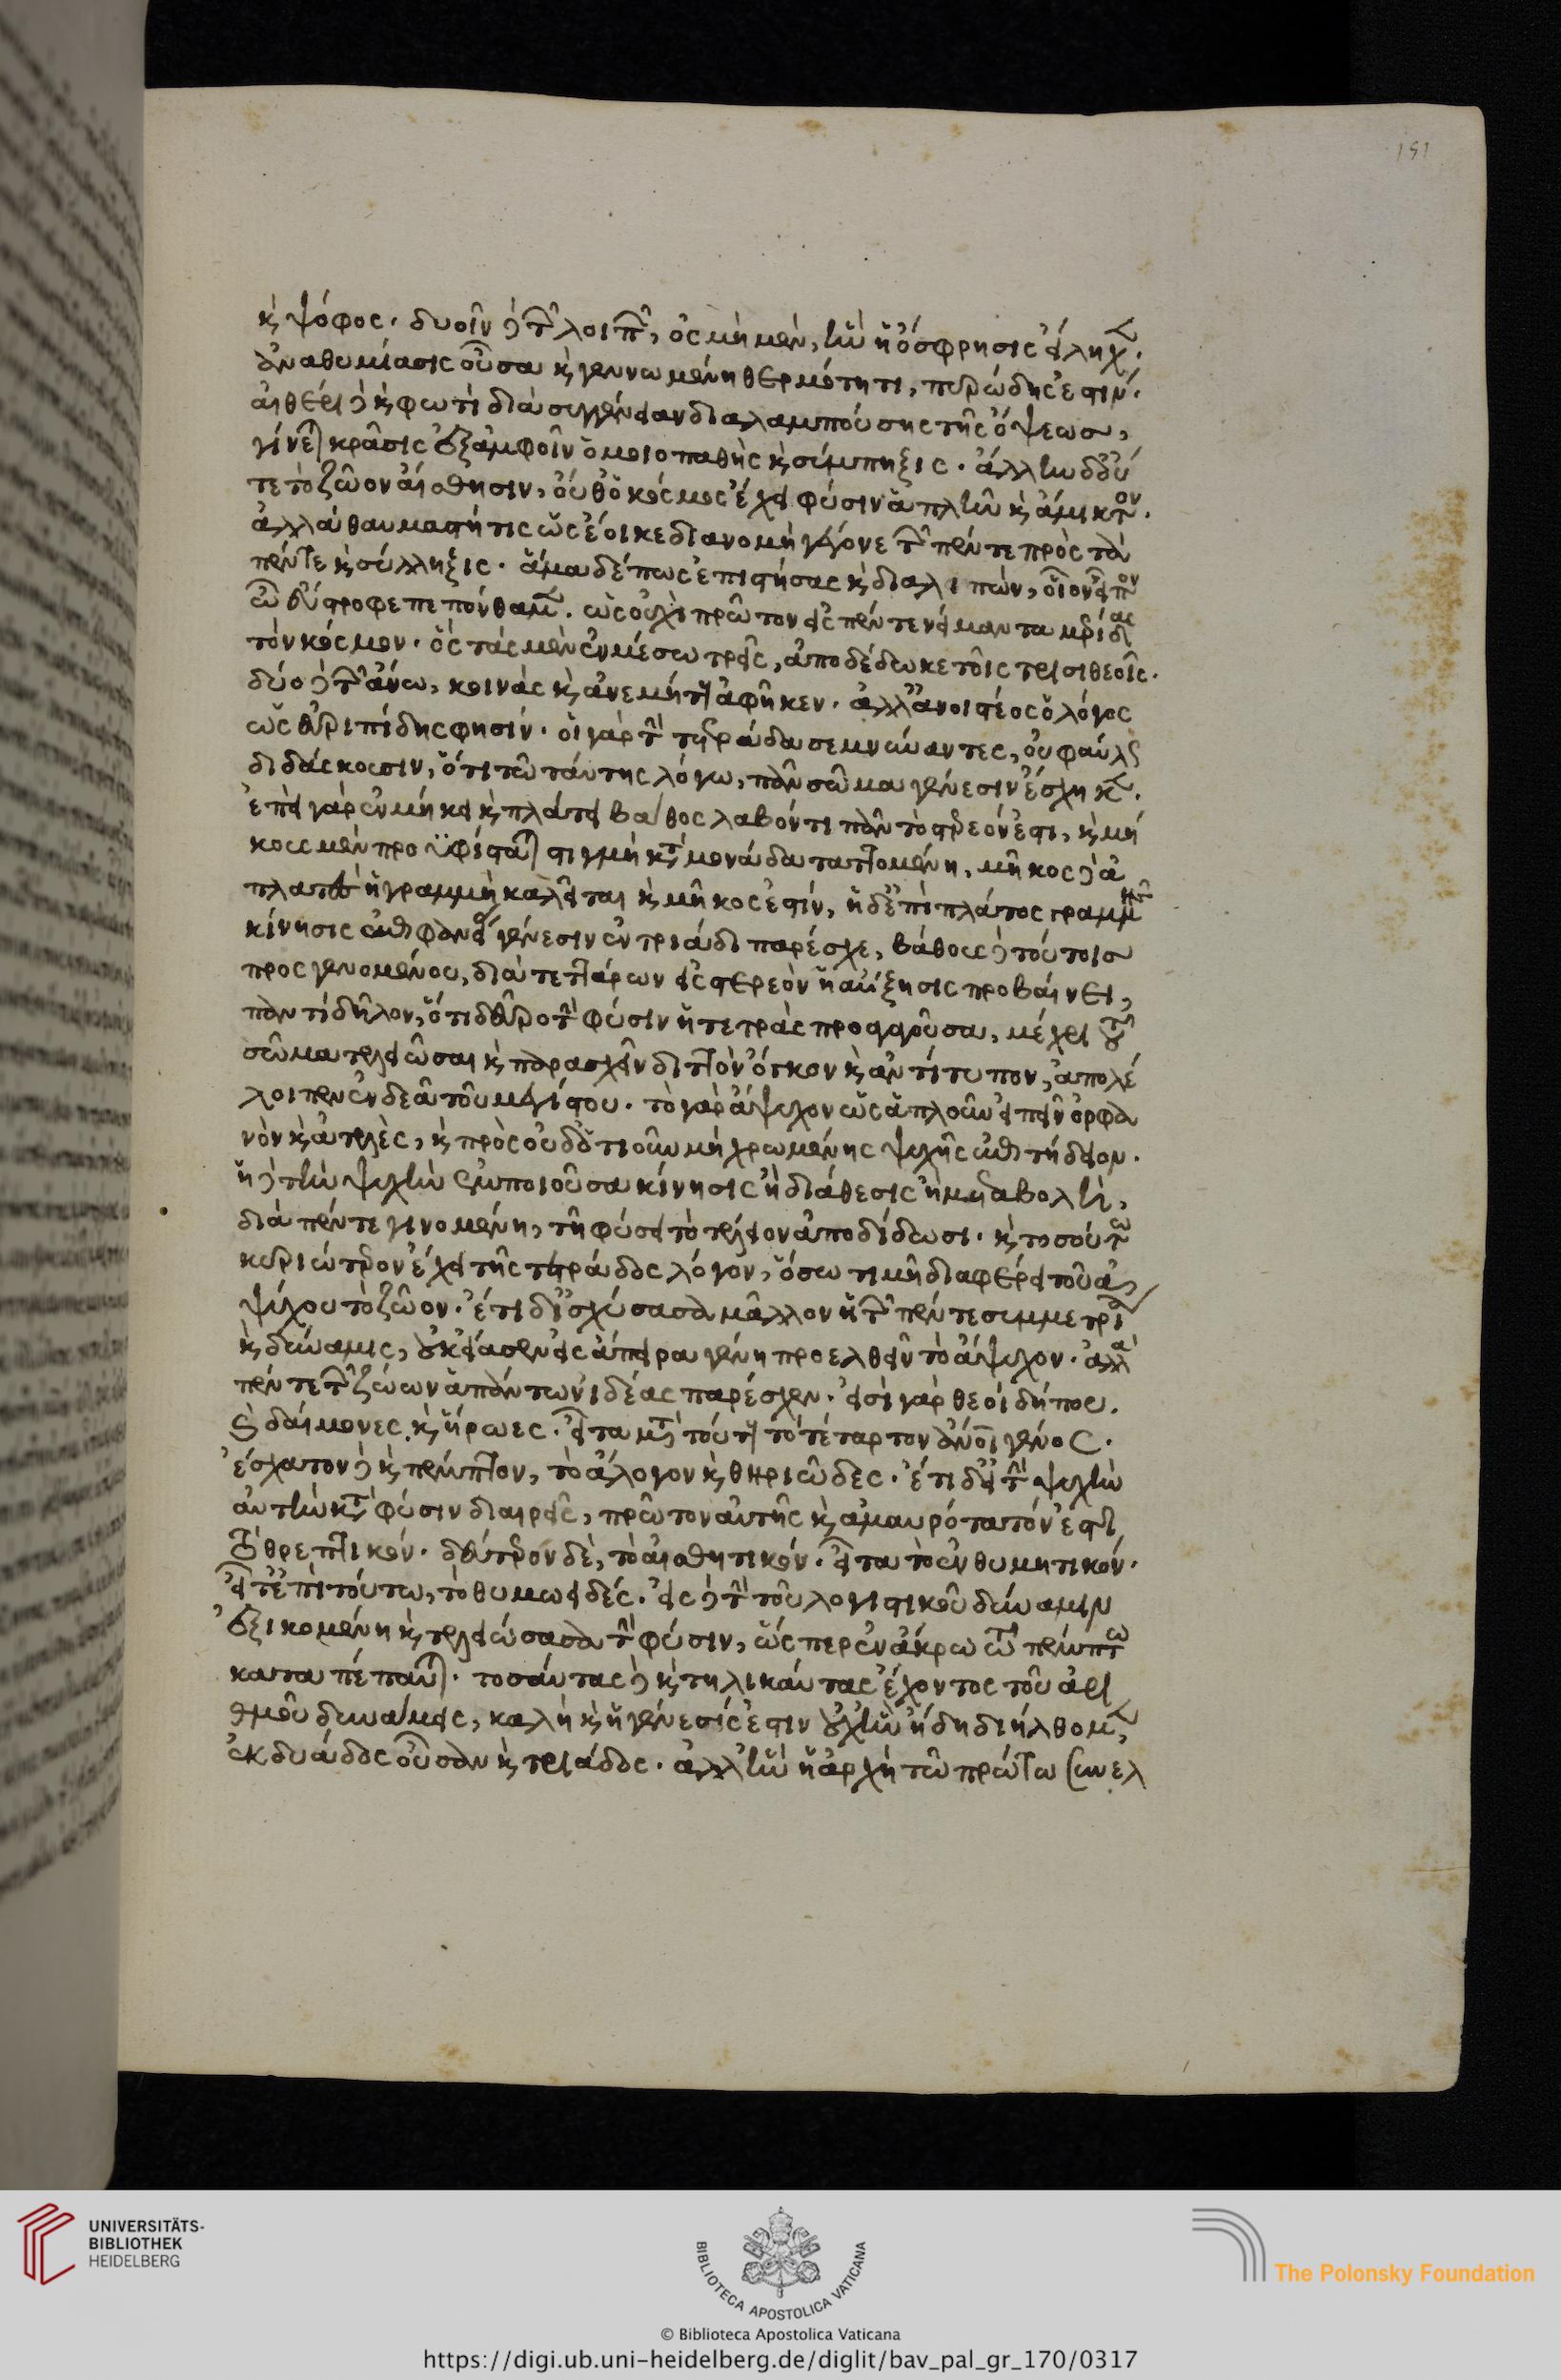 151
κ ψόφος. δυοῖν δὲ τῶν λοιπῶν, ὀσμὴ μὲν, ἣν ἡ ὄσφρησις εἴληχεν.
ἀναθυμίασις οὖσα κ γεννωμένη θερμότητι, πυρώδης ἐστίν.
αἰθέρι δὲ κ φωτὶ διὰ συγγένειαν διαλαμπούσης τῆς ὄψεως,
γίνεται κρᾶσις ἐξ ἀμφοῖν ὁμοιοπαθὴς κ σύμπηξις. ἄλλην δ' οὔ
τε τὸ ζῶον αἴσθησιν, οὔθ' ὁ κόσμος ἔχει φύσιν ἁπλῆν κ ἄμικτον.
ἀλλὰ θαυμαστή τις ὡς ἔοικε διανομὴ γέγονε τῶν πέντε πρὸς τὰ
πέντε κ σύλληξις. ἅμα δέ πως ἐπιστήσας κ διαλιπών, οἷον εἶπον
ὦ εὔστροφε πεπόνθαμεν. ὡς οὐχὶ πρῶτον εἰς πέντε νείμαντα μερίδας
τὸν κόσμον. ὃς τὰς μὲν ἐν μέσω τρεῖς, ἀποδέδωκε τοῖς τρισὶ θεοῖς.
δύο δὲ τὰς ἄνω, κοινὰς κ ἀνεμήτους ἀφῆκεν. ἀλλ' ἀνοιστέος ὁ λόγος
ὡς εὐριπίδης φησίν. οἱ γὰρ τὴν τετράδα σεμνύναντες, οὐ φαύλως
διδάσκουσιν, ὅτι τῶ ταύτης λόγω, πᾶν σῶμα γένεσιν ἔσχηκεν.
ἐπεὶ γὰρ ἐν μήκει κ πλάτει βάθος λαβόντι πᾶν τὸ στερεόν ἐστι, κ μή
κους μὲν προϋφίσταται στιγμὴ κατὰ μονάδα ταττομένη, μῆκος δὲ ἀ
πλατὲς ἡ γραμμὴ καλεῖται κ μῆκος ἐστίν, ἡ δ' ἐπὶ πλάτος γραμμῆς
κίνησις ἐπιφανείας γένεσιν ἐν τριάδι παρέσχε, βάθους δὲ τούτοις
προσγενομένου, διὰ τεττάρων εἰς στερεὸν ἡ αὔξησις προβαίνει,
παντὶ δῆλον, ὅτι δεῦρο τὴν φύσιν ἡ τετρὰς προαγαγοῦσα, μέχρι τοῦ
σῶμα τελειῶσαι κ παρασχεῖν διττὸν ὄγκον κ ἀντίτυπον, ἀπολέ
λοιπεν ἐνδεᾶ τοῦ μεγίστου. τὸ γὰρ ἄψυχον ὡς ἁπλοῦν εἰπεῖν ὀρφα
νὸν κ ἀτελὲς, κ πρὸς οὐδ' ὁτιοῦν μὴ χρωμένης ψυχῆς ἐπιτήδειον.
ἡ δὲ τὴν ψυχὴν ἐμποιοῦσα κίνησις ἢ διάθεσις ἢ μεταβολὴ,
διὰ πέντε γινομένη, τῆ φύσει τὸ τέλειον ἀποδίδωσι. κ τοσούτω
κυριώτερον ἔχει τῆς τετράδος λόγον, ὅσω τιμῆ διαφέρει τοῦ ἀ
ψύχου τὸ ζῶον. ἔτι δ' ἰσχύσασα μᾶλλον ἡ τῶν πέντε συμμετρία
κ δύναμις, οὐκ εἴασεν εἰς ἄπειρα γένη προελθεῖν τὸ ἄψυχον. ἀλλὰ
πέντε τῶν ζώων ἁπάντων ἰδέας παρέσχεν. εἰσὶ γὰρ θεοὶ δήπου.
κ δαίμονες κ ἥρωες. εἶτα μετὰ τούτους τὸ τέταρτον ἀνθρώποι γένος.
ἔσχατον δὲ κ πέμπτον, τὸ ἄλογον κ θηριῶδες. ἔτι δ' εἰ τὴν ψυχὴν
αὐτὴν κατὰ φύσιν διαιρεῖς, πρῶτον αὐτῆς κ ἀμαυρότατόν ἐστι
τὸ θρεπτικόν. δεύτερον δὲ, τὸ αἰσθητικόν. εἶτα τὸ ἐνθυμητικόν.
εἶτ' ἐπὶ τούτω, τὸ θυμωειδές. εἰς δὲ τὴν τοῦ λογιστικοῦ δύναμιν
ἐξικομένη κ τελειώσασα τὴν φύσιν, ὥσπερ ἐν ἄκρω τῶ πέμπτω
καταπέπαυται. τοσαύτας δὲ κ τηλικαύτας ἔχοντος τοῦ ἀρι
θμοῦ δυνάμεις, καλὴ κ ἡ γένεσίς ἐστιν οὐχ ἣν ἤδη διήλθομεν,
ἐκ δυάδος οὖσαν κ τριάδος. ἀλλ' ἣν ἡ ἀρχὴ τῶ πρώτω συνελ
UNIVERSITÄTS-
BIBLIOTHEK
HEIDELBERG
BIBLIOTECA APOSTOLICA VATICANA
The Polonsky Foundation
© Biblioteca Apostolica Vaticana
https://digi.ub.uni-heidelberg.de/diglit/bav_pal_gr_170/0317